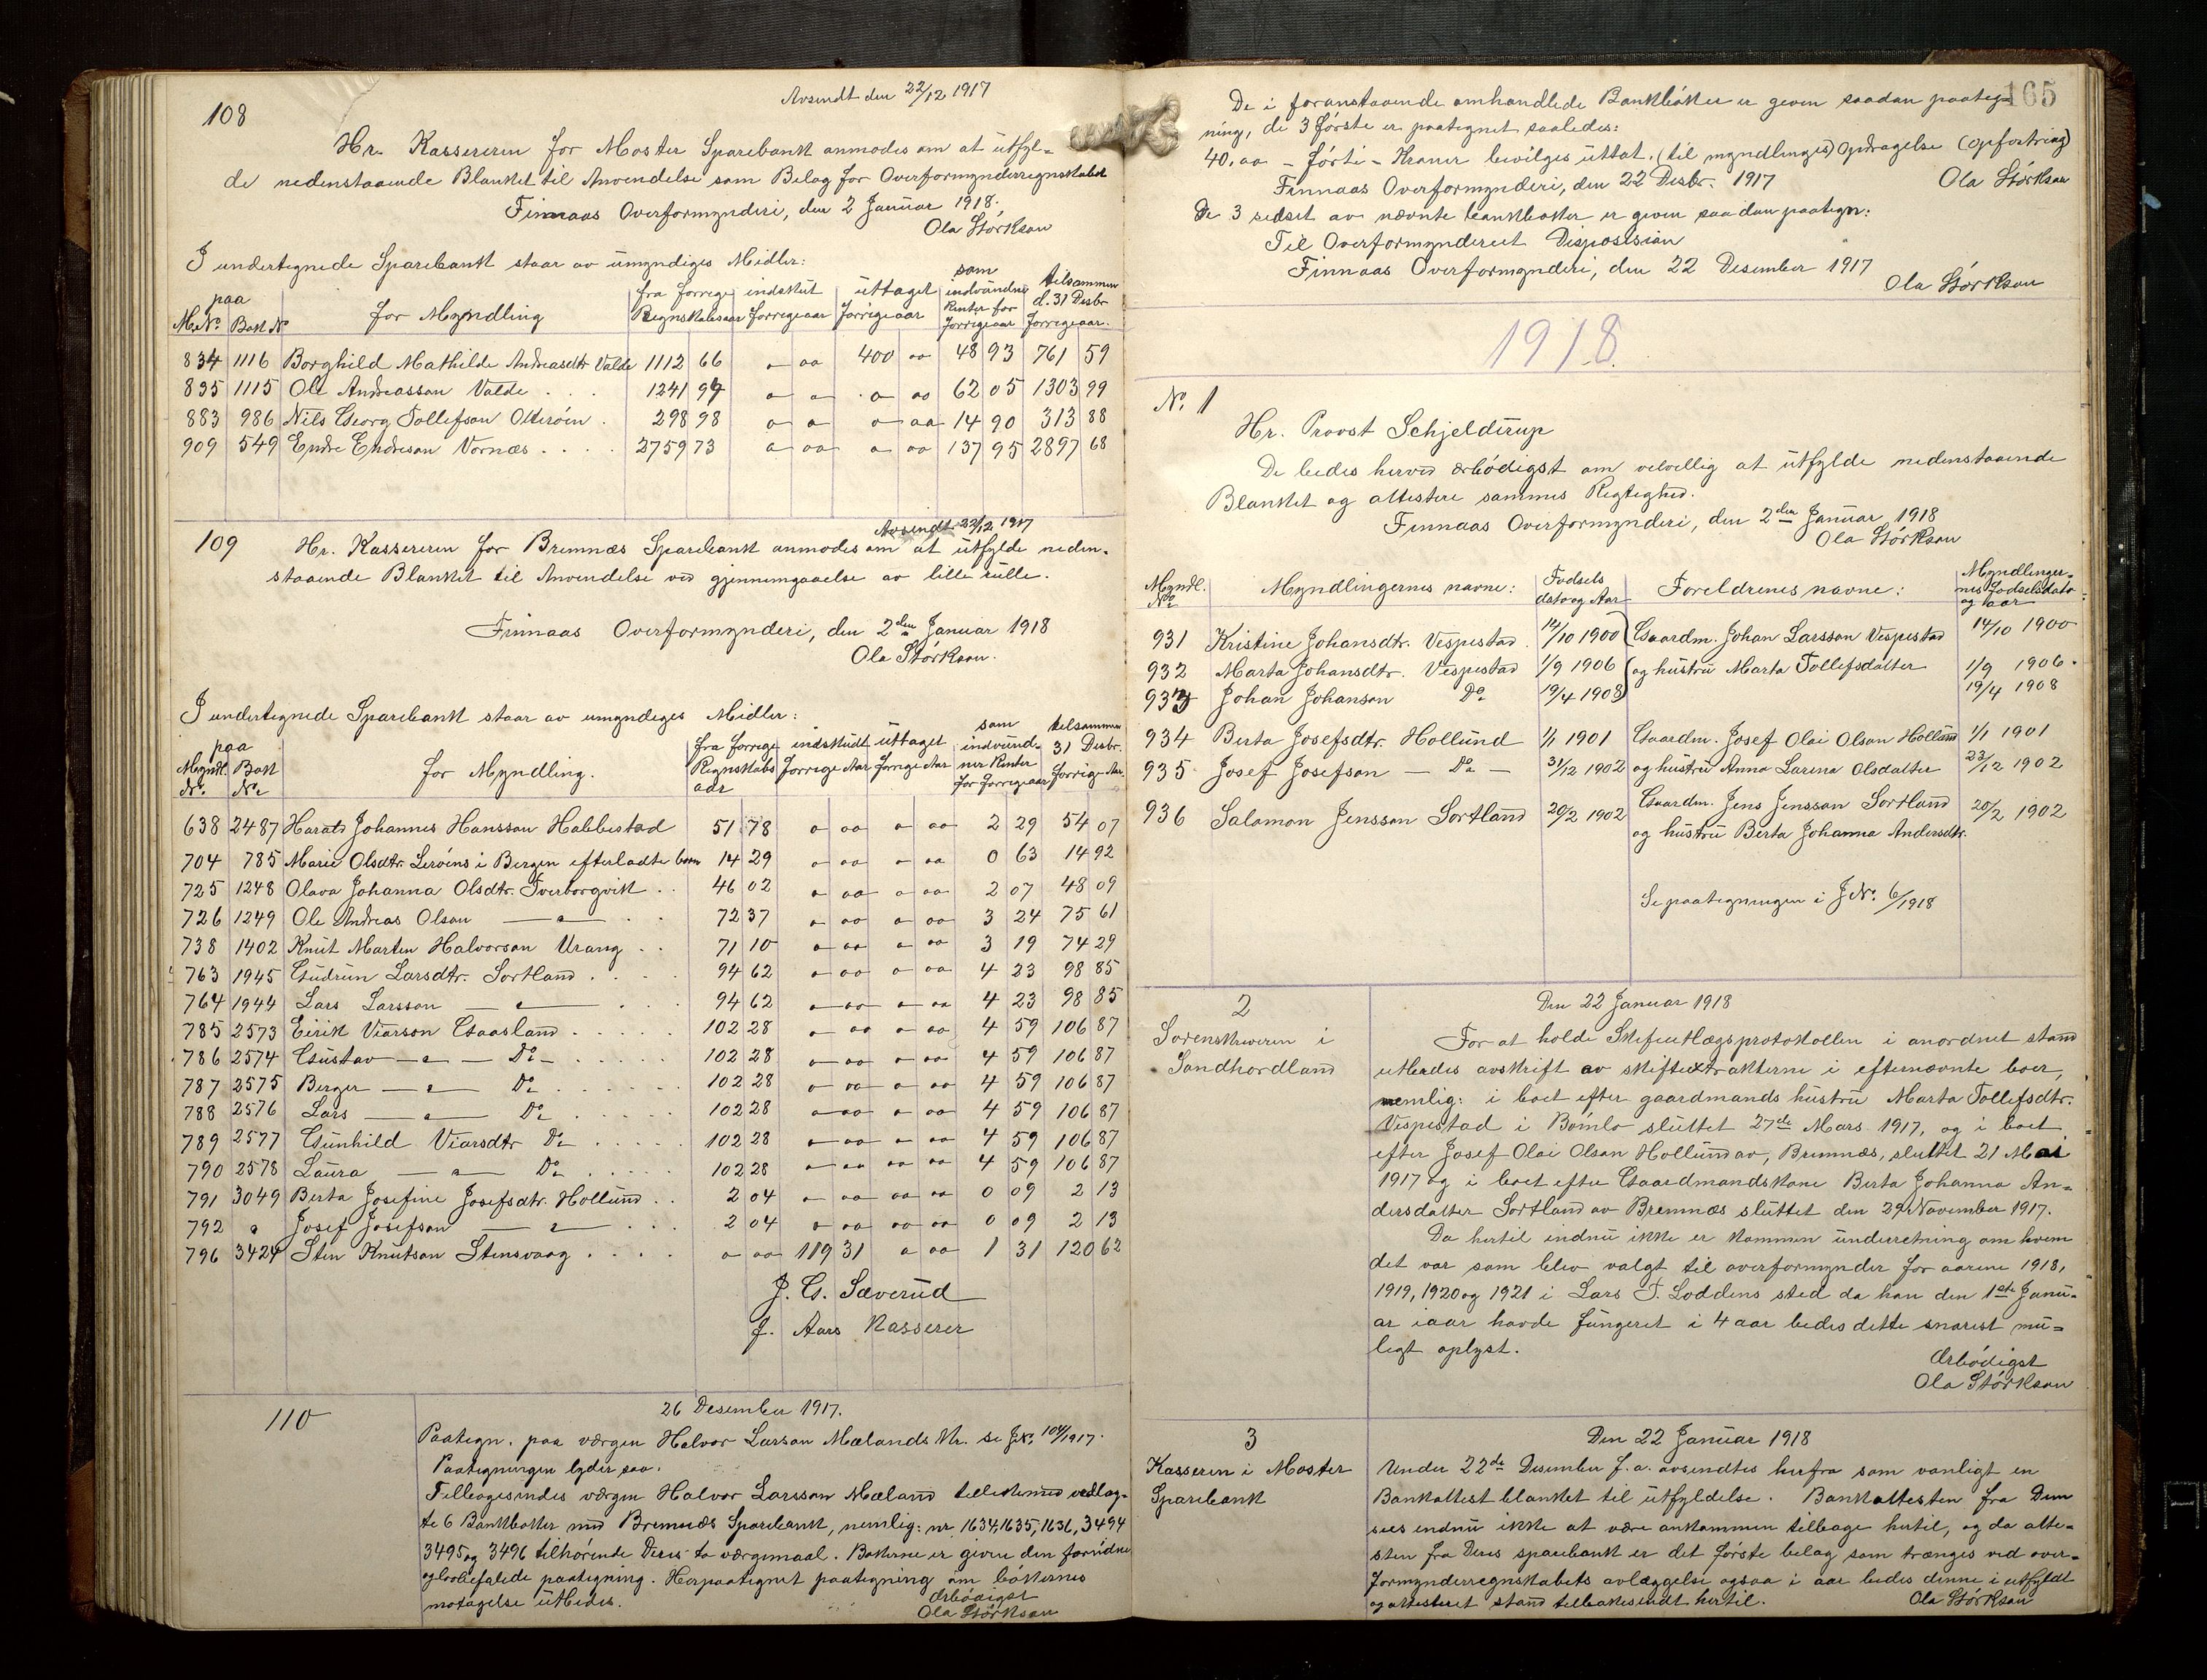 Avsendt den 22/12 1917
108
Hr. Kassereren for Moster Sparebank anmodes om at utfyl-
de nedenstaaende Blanket til Anvendelse som Belag for Overformynderregnskabet
Finnaas Overformynderi, den 2 Januar 1918.
Ola Störkson
I undertegnede Sparebank staar av umyndiges Midler:
paa
M. No. | Bok No | for Myndling | fra forrige Regnskabsaar | indskut forrigeaar | uttaget forrigeaar | som indvundne Renter for forrigeaar | tilsammen d. 31 Desbr forrigeaar.
834 | 1116 | Borghild Mathilde Andreasdtr Valde | 1112 66 | " " | 400 " | 48 93 | 761 59
835 | 1115 | Ole Andreasson Valde . . . | 1241 94 | " " | " " | 62 05 | 1303 99
883 | 986 | Nils Georg Tollefson Otteröen . | 298 98 | " " | " " | 14 90 | 313 88
909 | 549 | Endre Endreson Vornæs . . . . | 2759 73 | " " | " " | 137 95 | 2897 68
Avsendt 22/12 1917
109 Hr. Kassereren for Bremnæs Sparebank anmodes om at utfylde neden-
staaende Blanket til Anvendelse ved gjennemgaaelse av lille rulle.
Finnaas Overformynderi, den 2den Januar 1918
Ola Störkson.
I undertegnede Sparebank staar av umyndiges Midler:
paa
Myndl. No. | Bok No. | for Myndling. | fra forrige Regnskabs aar | indskudt forrige Aar | uttaget forrige Aar | som indvund- ner Renter for forrigeaar | tilsammen 31 Desbr. forrige Aar.
638 | 2487 | Harald Johannes Hansson Habbestad | 51 78 | " " | " " | 2 29 | 54 07
704 | 785 | Marie Olsdtr. Leröens i Bergen efterladte born | 14 29 | " " | " " | 0 63 | 14 92
725 | 1248 | Olava Johanna Olsdtr. Tverborgvik . . | 46 02 | " " | " " | 2 07 | 48 09
726 | 1249 | Ole Andreas Olson — " — . . | 72 37 | " " | " " | 3 24 | 75 61
738 | 1402 | Knut Martin Halvorson Urang . . | 71 10 | " " | " " | 3 19 | 74 29
763 | 1945 | Gudrun Larsdtr. Sortland . . . . | 94 62 | " " | " " | 4 23 | 98 85
764 | 1944 | Lars Larsson — " — . . | 94 62 | " " | " " | 4 23 | 98 85
785 | 2573 | Eirik Viarson Gaasland . . . . . | 102 28 | " " | " " | 4 59 | 106 87
786 | 2574 | Gustav — " — Do — . . . . . | 102 28 | " " | " " | 4 59 | 106 87
787 | 2575 | Berger — " — Do . . . . . . | 102 28 | " " | " " | 4 59 | 106 87
788 | 2576 | Lars — " — Do . . . . . | 102 28 | " " | " " | 4 59 | 106 87
789 | 2577 | Gunhild Viarsdtr Do . . . . . | 102 28 | " " | " " | 4 59 | 106 87
790 | 2578 | Laura — " — Do . . . . . | 102 28 | " " | " " | 4 59 | 106 87
791 | 3049 | Berta Josefine Josefsdtr. Hollund . . | 2 04 | " " | " " | 0 09 | 2 13
792 | " | Josef Josefson — " — . . . | 2 04 | " " | " " | 0 09 | 2 13
796 | 3424 | Sten Knutson Stensvaag . . . . | " " | 119 31 | " " | 1 31 | 120 62
J. G. Sæverud
f. Aars Kasserer
110
26 Desember 1917.
Paategn. paa værgen Halvor Larson Mælands Skr. se J.No. 104/1917.
Paategningen lyder saa.
Tilbagesendes værgen Halvor Larsson Mæland tillikemed vedlag-
te 6 Bankboker med Bremnæs Sparebank, nemlig: nr. 1634, 1635, 1636, 3494
3495 og 3496 tilhörende Deres to værgemaal. Bokerne er given den fornødne
og lovbefalede paategning. Herpaategnet paategning om bökernes
motagelse utbedes.
Ærbödigst
Ola Störkson
165
De i foranstaaende omhandlede Bankböker er given saadan paateg-
ning, de 3 förste er paategnet saaledes:
40.00 - förti - Kroner bevilges uttat. (til myndlinges) Opdragelse (opfostring)
Finnaas Overformynderi, den 22 Desbr. 1917
Ola Störkson
De 3 sidset av nævnte bankboker er given saadan paategn:
Til Overformynderiet Disposision
Finnaas Overformynderi, den 22 Desember 1917
Ola Störkson
1918.
No. 1
Hr. Provst Schjelderup
De bedes herved ærbödigst om velvellig at utfylde nedenstaaende
Blanket og attestere sammes Rigtighed.
Finnaas Overformynderi, den 2den Januar 1918
Ola Störkson
Myndl. No. | Myndlingernes navne: | Fodsels dato og Aar | Foreldrenes navne: | Myndlinger- nes Fodselsdato og aar
931 | Kristine Johansdtr. Vespestad | 14/10 1900 | Gaardm. Johan Larsson Vespestad | 14/10 1900
932 | Marta Johansdtr. Vespestad | 1/9 1906 | og hustru Marta Tollefsdatter | 1/9 1906.
933 | Johan Johanson Do | 19/4 1908 | | 19/4 1908
934 | Berta Josefsdtr. Hollund | 1/1 1901 | Gaardm. Josef Olai Olson Hollund | 1/1 1901
935 | Josef Josefson — Do — | 31/12 1902 | og hustru Anna Larina Olsdatter | 23/12 1902
936 | Salamon Jensson Sortland | 20/2 1902 | Gaardm. Jens Jensson Sortland | 20/2 1902
og hustru Berta Johanna Andersdtr.
Se paategningen i J No. 6/1918
2
Sorenskriveren i
Sondhordland
Den 22 Januar 1918
For at holde Skifteutlægsprotokollen i anordnet stand
utbedes avskrift av skifteextrakterne i efternævnte boer,
nemlig: i boet efter gaardmands hustru Marta Tollefsdtr.
Vespestad i Bömlo sluttet 27de Mars 1917, og i boet
efter Josef Olai Olson Hollund av, Bremnæs, sluttet 21 Mai
1917 og i boet efter Gaardmandskone Berta Johanna An-
dersdatter Sortland av Bremnæs sluttet den 29 November 1917.
Da hertil indnu ikke er kommen underretning om hvem
det var som blev valgt til overformynder for aarene 1918,
1919, 1920 og 1921 i Lars T. Loddens sted da han den 1ste Janu-
ar iaar havde fungeret i 4 aar bedes dette snarest mu-
ligt oplyst.
Ærbödigst
Ola Störkson
3
Kasseren i Moster
Sparebank
Den 22 Januar 1918
Under 22de Desember f.a. avsendtes herfra som vanligt en
Bankattest blanket til utfyldelse. Bankattesten fra Dem
sees endnu ikke at være ankommen tilbage hertil, og da atte-
sten fra Deres sparebank er det förste belag som trænges ved over-
formynderregnskabets avlæggelse ogsaa i aar bedes denne i utfyldt
og attesteret stand tilbakesendt hertil.
Ola Störkson